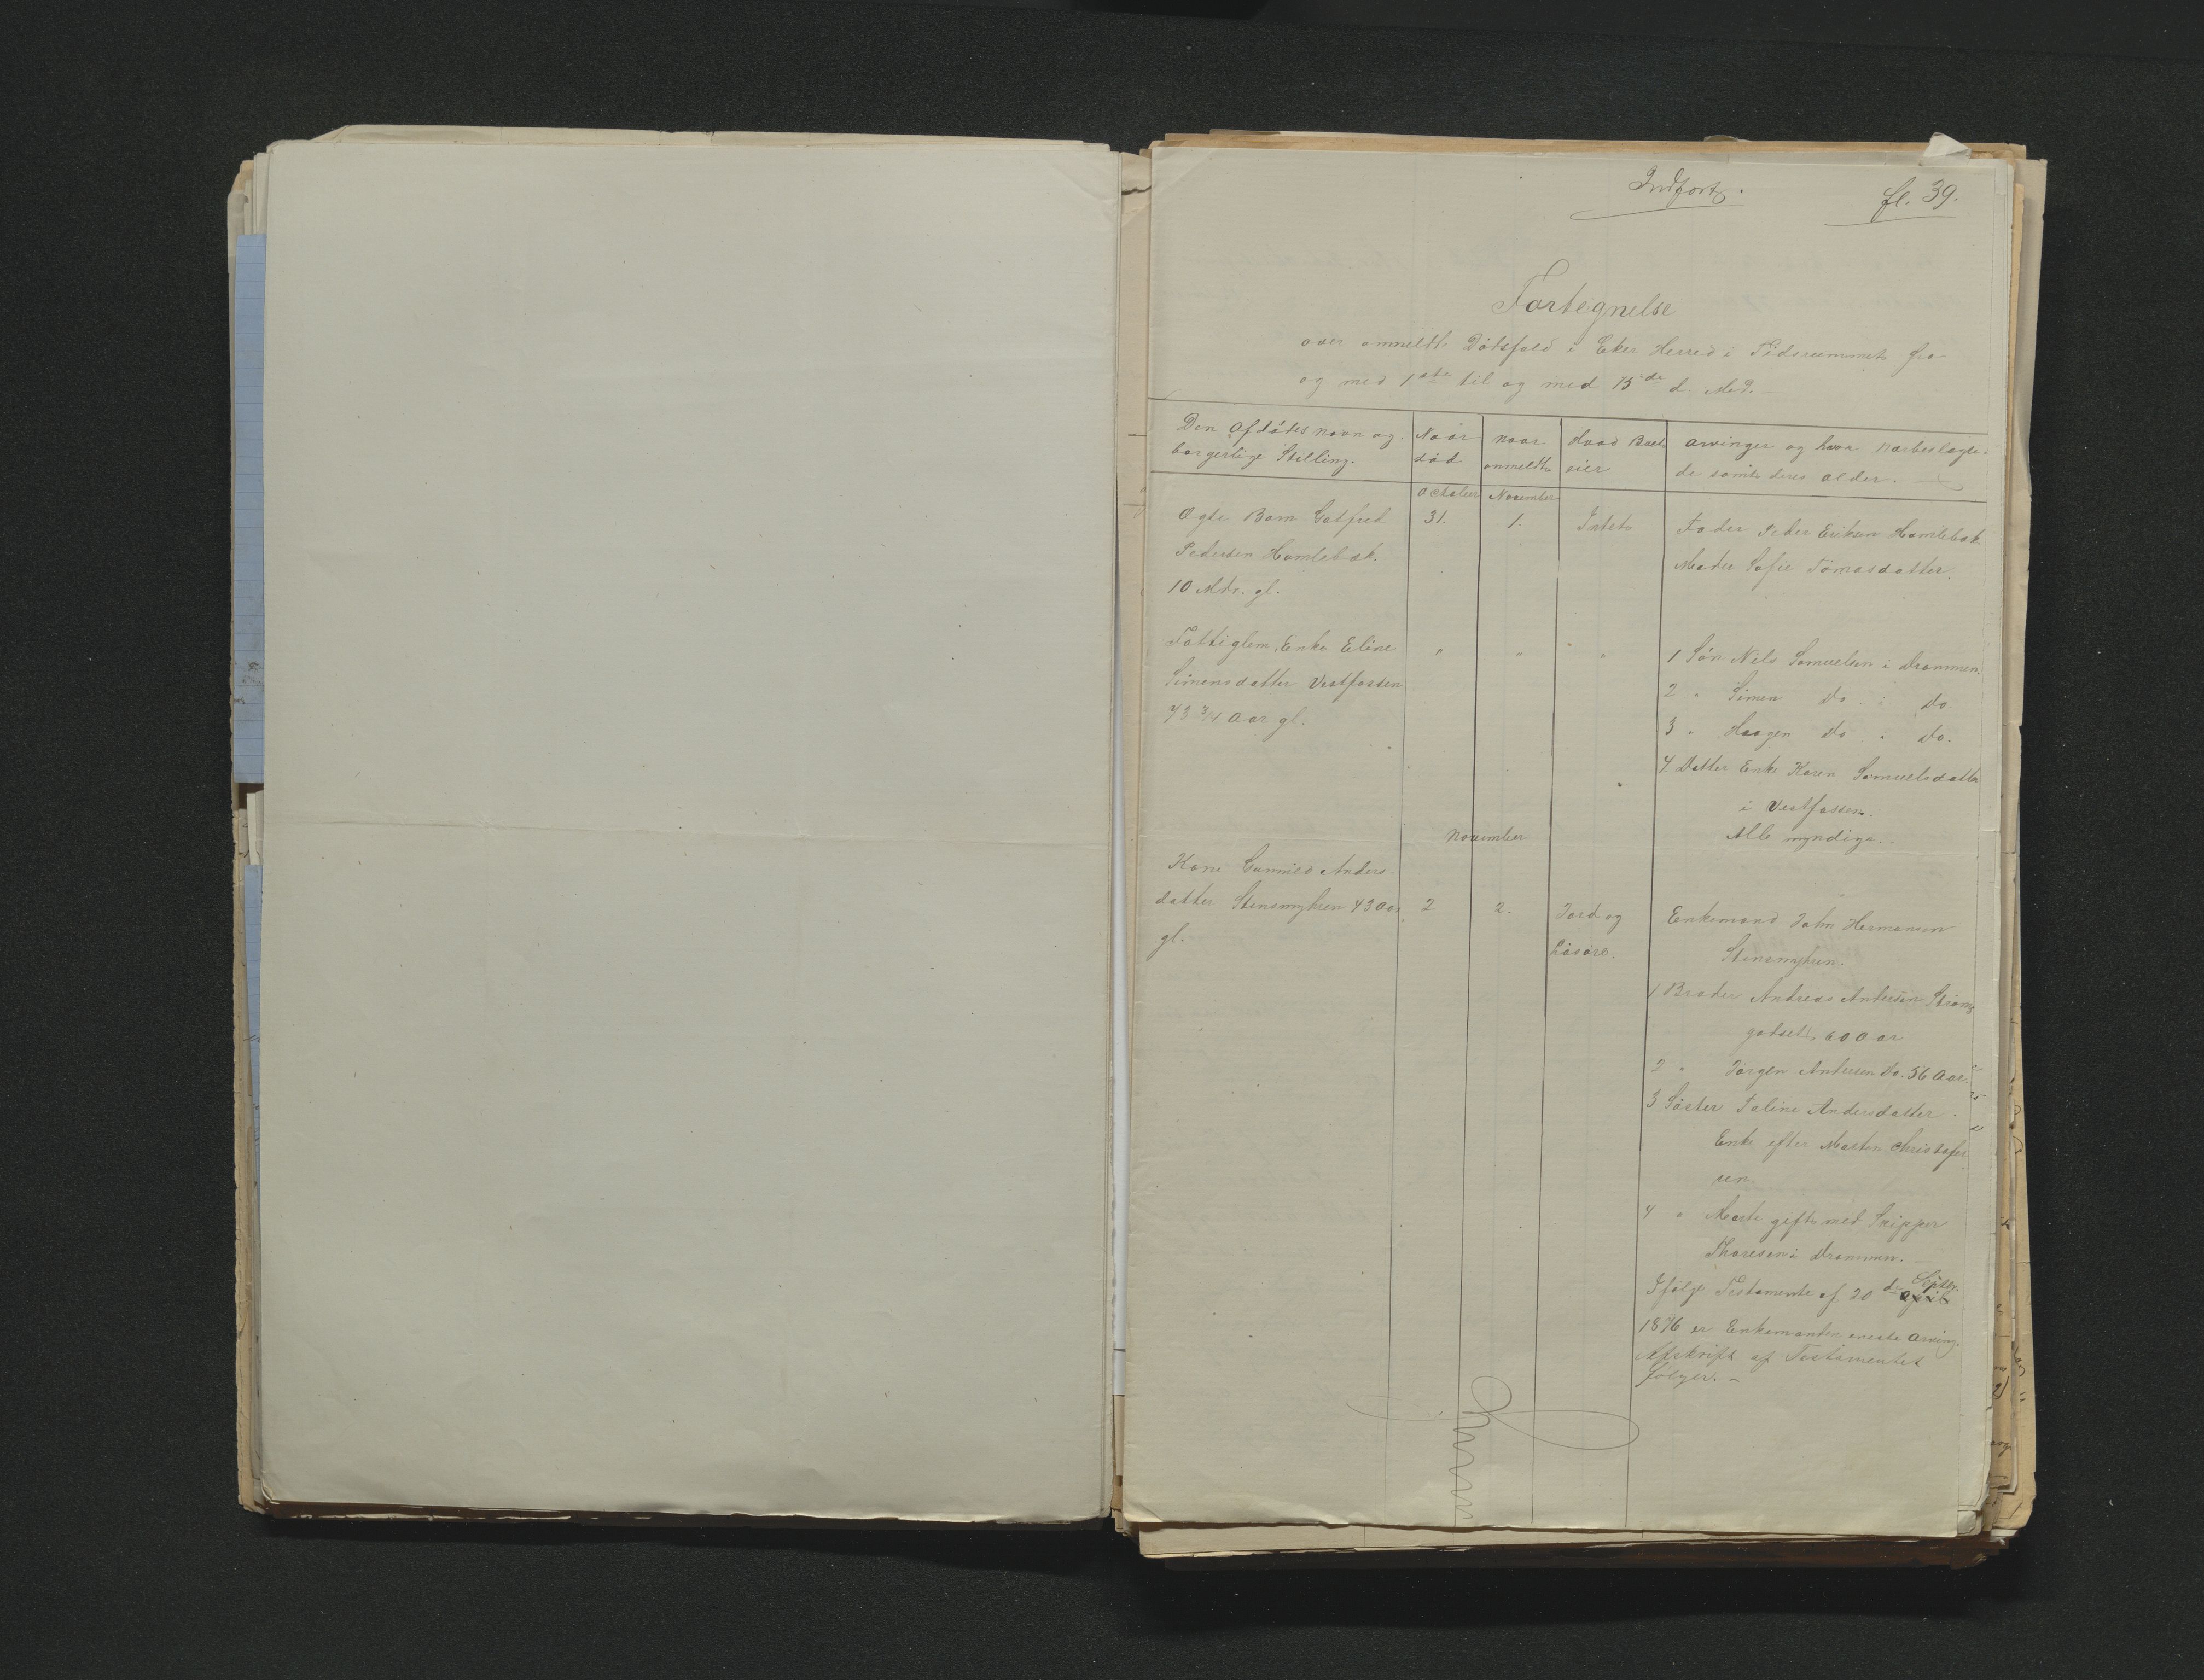 Indført.
fl. 39.
Fortegnelse
over anmeldte Dødsfald i Eker Herred i Tidsrummet fra
og med 1ste til og med 15de d. Md.
Den afdødes navn og borgerlige Stilling.
Naar død
naar anmeldt
Hvad Boet eier
arvinger og hvor nærbeslægtede samt deres alder.
October November
Ægte Barn Gotfred 31. 1. Intet Fader Peder Eriksen Hamlebæk
Pedersen Hamlebæk. Moder Sofie Tomasdatter.
10 Mdr. gl.
Fattiglem, Enke Eline " " " " 1 Søn Nils Samuelsen i Drammen.
Simensdatter Vestfossen 2 " Simen do i do
73 3/4 Aar gl. 3 " Haagen do " do.
4. Datter Enke Karen Samuelsdatter
i Vestfossen.
November Alle myndige.
Kone Gunnild Anders
datter Stensmyhren 43 Aar 2 2. Jord og Enkemand John Hermansen
gl. Løsøre. Stensmyhren.
1 Broder Andreas Andersen Strøms
godset, 60 Aar
2 " Jørgen Andersen do. 56 Aar.
3 Søster Andersdatter.
Enke efter Morten Christofer
sen.
4 " Marte gift med Skipper
Thoresen i Drammen.
Ifølge Testamente af 20 de April Septbr.
1876 er Enkemanden eneste arving.
Afskrift af Testamentet
følger. —